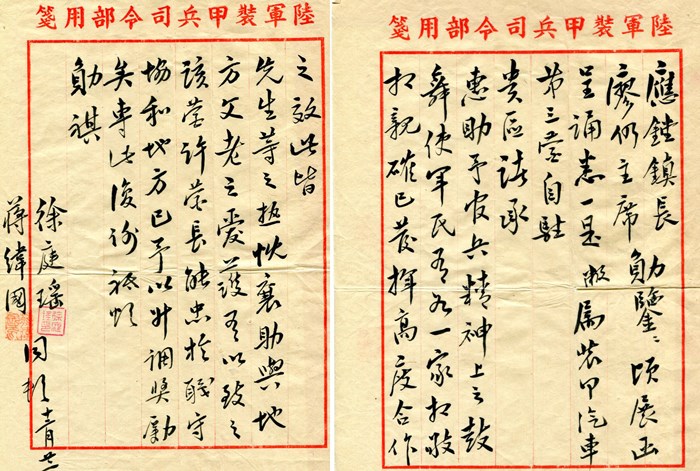 陸軍裝甲兵司令部用箋
應鏗鎮長
廖仍主席 勛鑒：頃展函
呈誦悉一是敝屬裝甲汽車
第三營自駐
貴區諸承
惠助予官兵精神上之鼓
舞使軍民有如一家相敬
相親確已發揮高度合作
陸軍裝甲兵司令部用箋
之效此皆
先生等之熱忱襄助與地
方父老之愛護有以致之
該營許營長能忠於職守
協和地方已予以升調獎勵
矣專此復謝祗頌
勛祺
徐庭瑤
蔣緯國 同頓 十一月廿